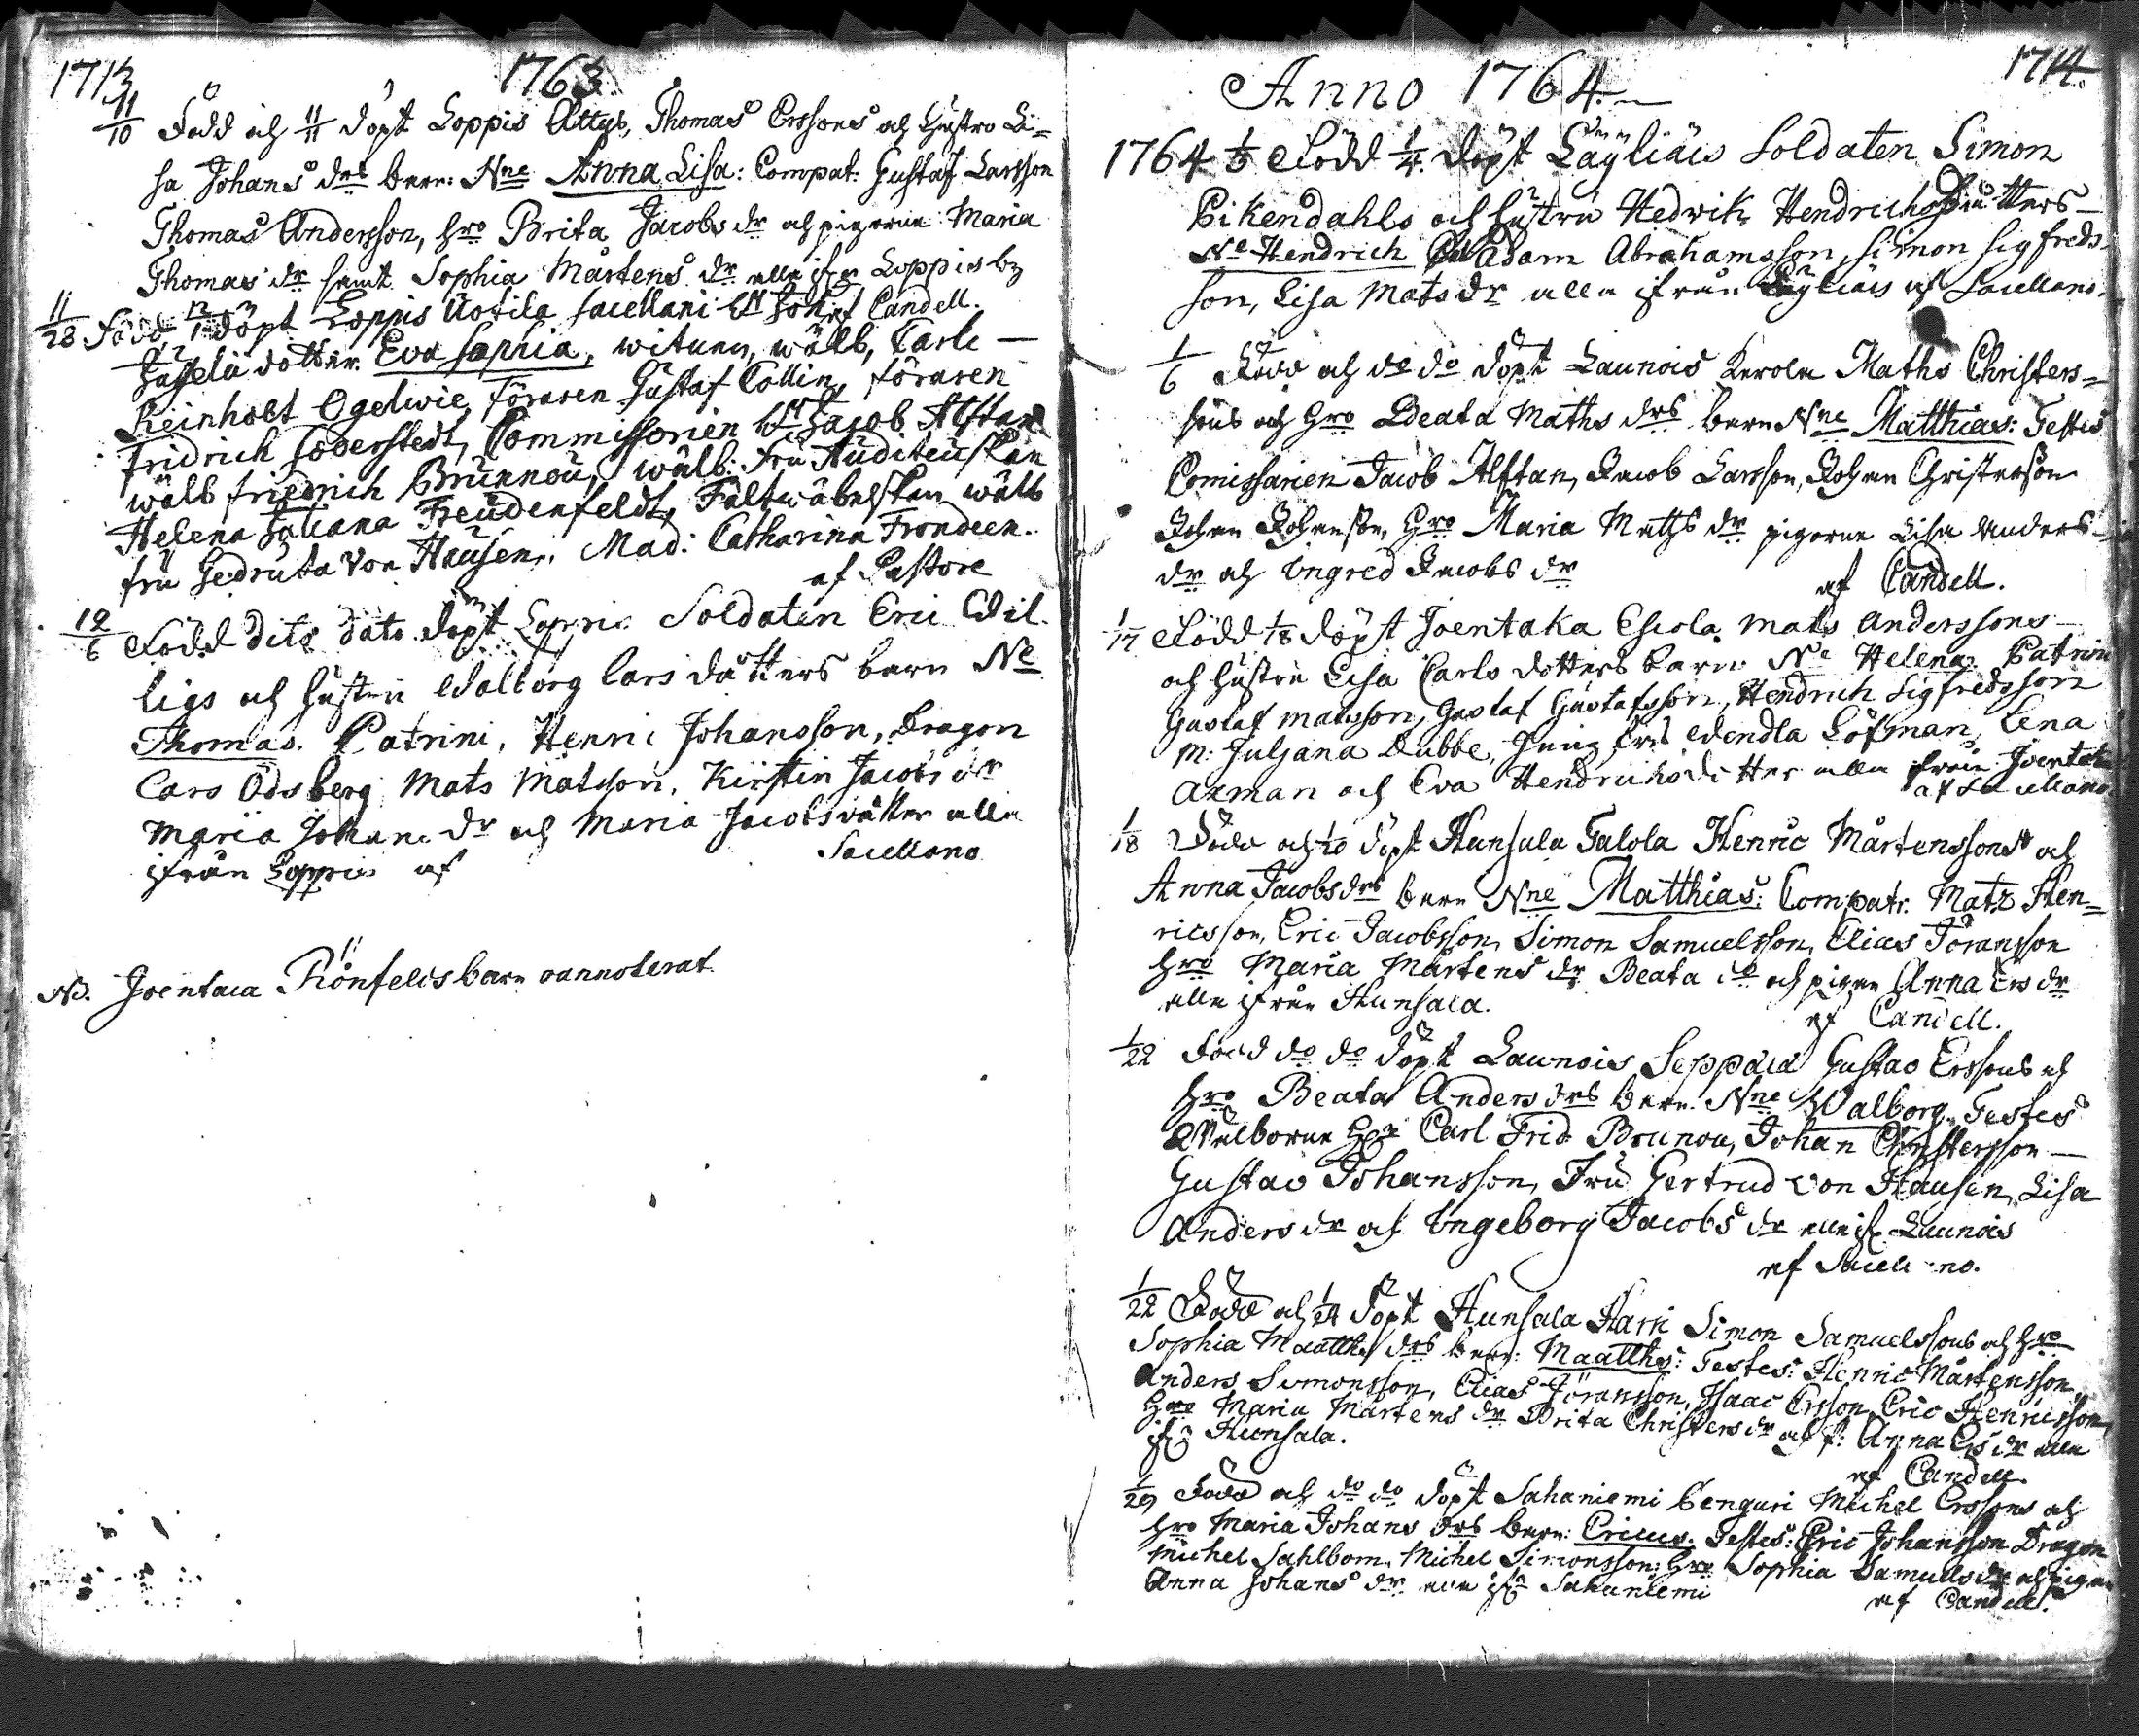 1713
1763
11/10 Född och 11/11 döpt Loppis Attys, Thomas Erssons och hustro Li=
sa Johans drs barn: Nne Anna Lisa: Compat: Gustaf Larsson
Thomas Andersson, hro Brita Jacobs dr och pigorna Maria
Thomas dr samt Sophia Mårtens dr alla ifr Loppis by
af Candell.
11/28 Född, döpt Loppis Uotila sacellani
dotter. Eva Sophia, witnen, wälb, Carle
Reinholt Ogelwie, föraren Gustaf Collin, föraren
Fridrich Söderstedt, Commissarien Hr Jacob Alftan
wälb friedrich Brunnou, wälb: fru Auditeurskan
Helena Juliana Freudenfeldt, Fältwäbelskan wälb
fru Gedruta von Hausen, Mad: Catharina Frondeen.
af Pastore
12/6 Född dito dato döpt Loppis Soldaten Eric Wil
ligs och hustru Walborg Lars dätters barn Ne
Thomas. Patrini, Henric Johansson, Dragon
Lars Odsberg, Mats Matsson, Kirstin Jacobs dr
Maria Johans dr och Maria Jacobs dätter alla
ifrån Loppis af Sacellano
NB. Joentaca Rönfelts barn oannoterat
1714.
Anno 1764.
1764 1/3 Född 1/4 döpt Läyliäis Soldaten Simon
Pikendahls och hustru Hedwik Hendrichs dätters
Ne Hendrich Adam Abrahamsson, Simon Sigfreds
son, Lisa Mats dr alla ifrån Läyliäis af Sacellano.
1/6 Född och do do döpt Launois Kerola Maths Christers=
sons och hro Beata Maths drs barn Nne Matthias: Testes
Comissarien Jacob Alftan, Jacob Larsson, Johan Christerson
Johan Johansson, hro Maria Maths dr pigorna Lisa Anders
dr och Ingred Jacobs dr
af Candell.
1/17 Född 1/18 döpt Joentaka Eskola Mats Anderssons
och hustru Lisa Carls dotters barn Ne Helena. Patrini
Gustaf Matsson, Gustaf Gustafsson, Hendrich Sigfredsson
M: Juliana Dubbe, Jungfru Wendla Löfman, Lena
Axman och Eva Hendrichs dotter alla ifrån Joentaka
af Sacellano
1/18 Född och 1/20 döpt Hunsala Talola Henric Mårtenssons och
Anna Jacobs drs barn Nne Matthias: Compatr. Matz Hen=
ricsson, Eric Jacobsson, Simon Samuelsson, Elias Jöransson
hro Maria Mårtens dr Beata do och pigan Anna Ers dr
alla ifrån Hunsala.
af Candell.
1/22 Född do do döpt Launois Seppälä Gustav Erssons och
hro Beata Anders drs barn. Nne Walborg. Testes
Welborne Hr Carl Frid: Brunou, Johan Christersson
Gustav Johansson, Fru Gertrud von Hausen, Lisa
Anders dr och Ingeborg Jacobs dr alla ifr Launois
af Sacellano.
1/22 Född och 1/24 döpt Hunsala Harri Simon Samuelssons och hro
Sophia Maatths drs barn: Maatths: Testes: Henric Mårtensson,
Anders Simonsson, Elias Jöransson, Isaac Ersson, Eric Henricsson,
hro Maria Mårtens dr Brita Christers dr och p: Anna Ers dr alla
ifr Hunsala.
af Candell.
1/29 Född och do do döpt Sahaniemi Benguri Michel Erssons och
hro Maria Johans drs barn: Ericus. Testes: Eric Johansson Dragon
Michel Sahlbom, Michel Simonsson: hro Sophia Samuels dr och pigan
Anna Johans dr alla ifr Sahaniemi
af Candell.